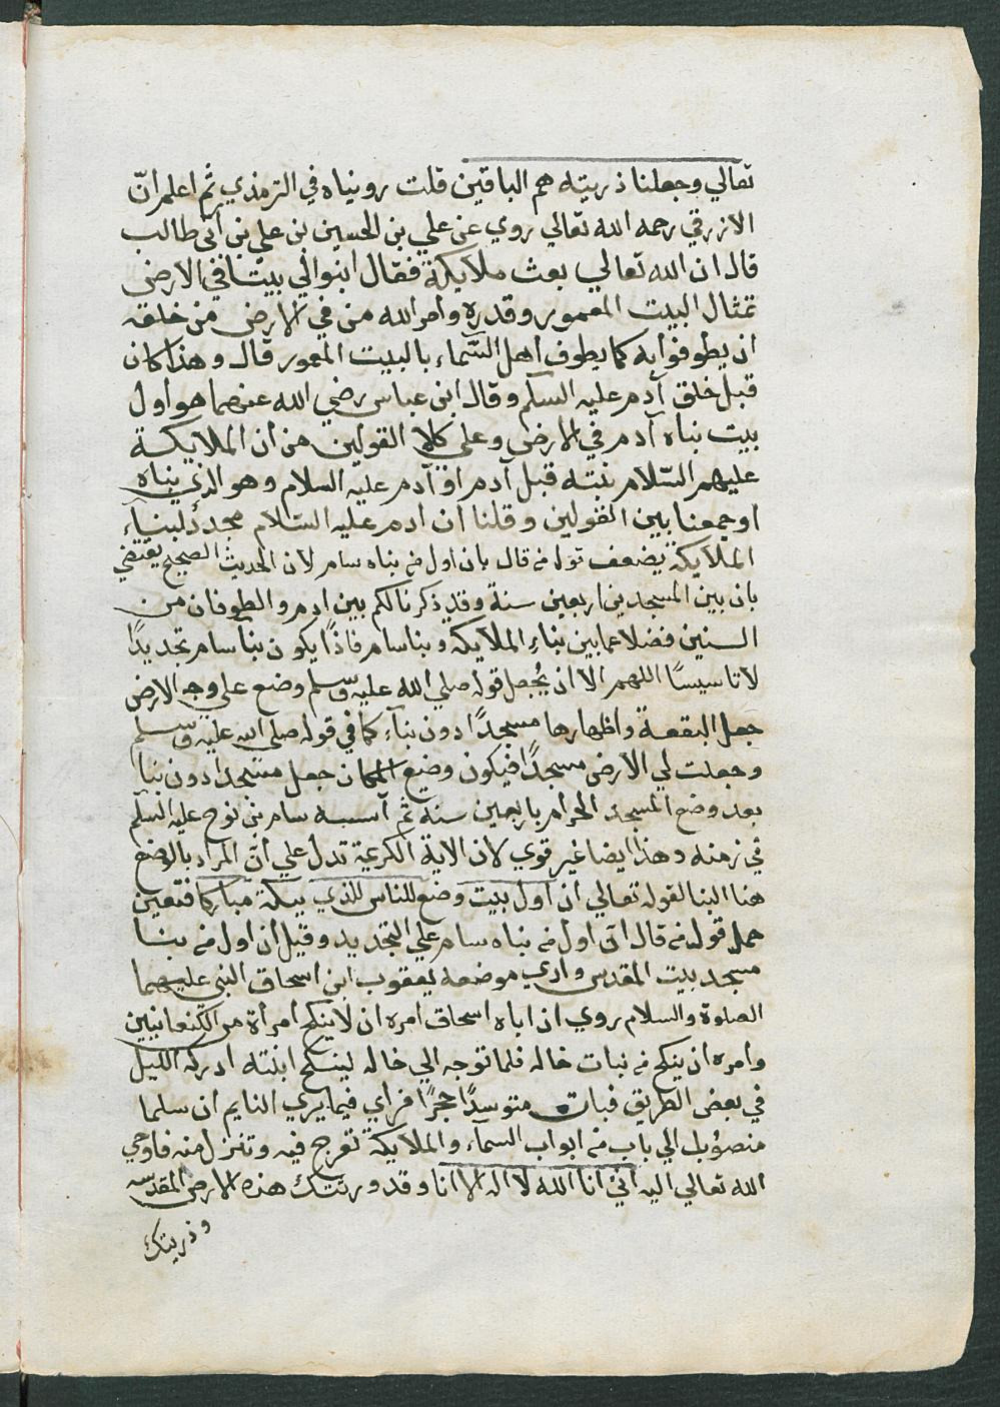 تعالي وجعلنا ذريته هم الباقين قلت رويناه في الترمذي ثم اعلم انّ
الازرقي رحمه الله تعالي روي عن علي بن الحسين بن علي بن أبى طالب
قال ان الله تعالي بعث ملايكة فقال ابنوا لي بيتا في الارض
تمثال البيت المعمور وقدره وامر الله من في الارض من خلقه
ان يطوفوا به كما يطوف اهل السّماء بالبيت المعمور قال وهذا كان
قبل خلق آدم عليه السلم وقال ابن عباس رضي الله عنهما هو اول
بيت بناه آدم في الارض وعلي كلا القولين من ان الملايكة
عليهم السّلام بنته قبل آدم او آدم عليه السلام وهو الذي بناه
او جمعنا بين القولين وقلنا ان ادم عليه السّلام مجدد لبناء
الملايكة يضعف قول من قال بان اول من بناه سام لان الحديث الصحيح يقتضي
بان بين المسجدين اربعين سنة وقد ذكرنا لكم بين ادم والطوفان من
السنين فضلا عما بين بناء الملايكة وبنا سام فاذًا يكون بنا سام تجديدًا
لا تاسيسًا اللهم الا ان يُجعل قوله صلي الله عليه وسلم وضع علي وجه الارض
جعل البقعة واظهارها مسجدًا دون بنآء كما في قوله صلي الله عليه وسلم
وجعلت لي الارض مسجدًا فيكون وضع المكان جعل مسجدا دون بنا
بعد وضع المسجد الحرام باربعين سنة ثم أسسه سام بن نوح عليه السلم
في زمنه وهذا ايضا غير قوي لان الاية الكريمة تدل علي انّ المراد بالوضع
هنا البنا لقوله تعالي ان اول بيت وضع للناس للذي ببكة مباركا فتعين
حمل قول من قال ان اول من بناه سام علي التجديد وقيل ان اول من بنا
مسجد بيت المقدس وادي موضعه يعقوب ابن اسحاق النبي عليهما
الصلوة والسلام روي ان اباه اسحاق امره ان لا ينكح امرأة من الكنعانيين
وامره ان ينكح من بنات خاله فلما توجه الي خاله لينكح ابنته ادركه الليل
في بعض الطريق فبات متوسدًا حجرًا فراي فيما يري النايم ان سلما
منصوب الي باب من ابواب السمآء والملايكة تعرج فيه وتنزل منه فاوحي
الله تعالي اليه انّي انا الله لا اله الا انا وقد ورثتك هذه الارض المقدسه
وذريتك